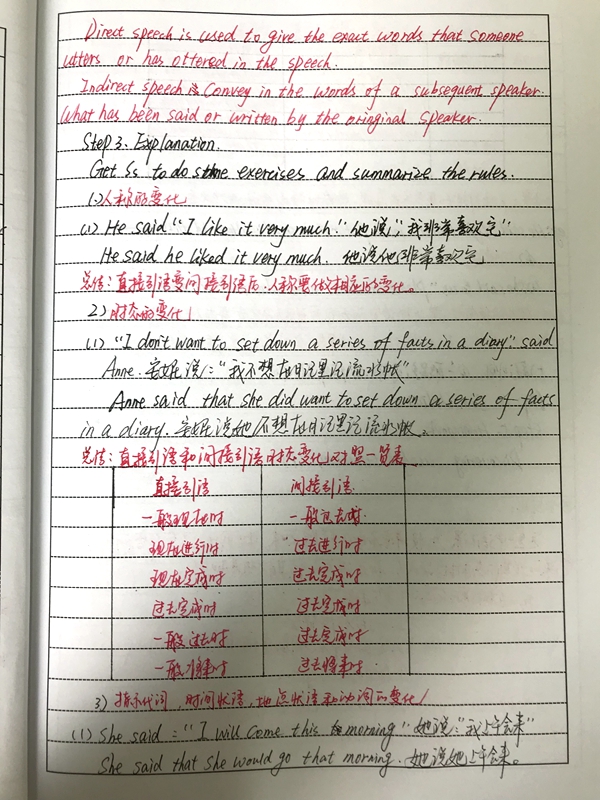 Direct speech is used to give the exact words that someone
utters or has ottered in the speech.
Indirect speech is Convey in the words of a subsequent speaker.
what has been said or written by the original speaker.
Step 3. Explanation.
Get Ss to do the exercises and summarize the rules.
1)人称的变化
(1) He said "I like it very much." 他说:"我非常喜欢它"
He said he liked it very much. 他说他非常喜欢它
总结:直接引语变间接引语后,人称要做相应的变化。
2)时态的变化
(1) "I don't want to set down a series of facts in a diary." said
Anne. 安妮说:"我不想在日记里记流水账"
Anne said that she did want to set down a series of facts
in a diary. 安妮说她不想在日记里记流水账。
总结:直接引语和间接引语时态变化对照一览表
直接引语 间接引语
一般现在时 一般过去时
现在进行时 过去进行时
现在完成时 过去完成时
过去完成时 过去完成时
一般过去时 过去完成时
一般将来时 过去将来时
3)指示代词,时间状语,地点状语和动词的变化
(1) She said: "I will come this morning" 她说:"我上午会来"
She said that she would go that morning. 她说她上午会来。